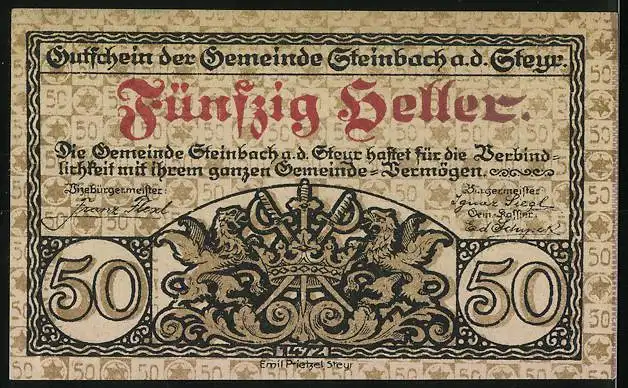 Gutschein der Gemeinde Steinbach a.d. Steyr.
Fünfzig Heller.
Die Gemeinde Steinbach a.d. Steyr haftet für die Verbind=
lichkeit mit ihrem ganzen Gemeinde=Vermögen.
Vizebürgermeister: Bürgermeister:
Franz Ignaz Siegl
Gem. Kassier:
50 50
Emil Prietzel Steyr